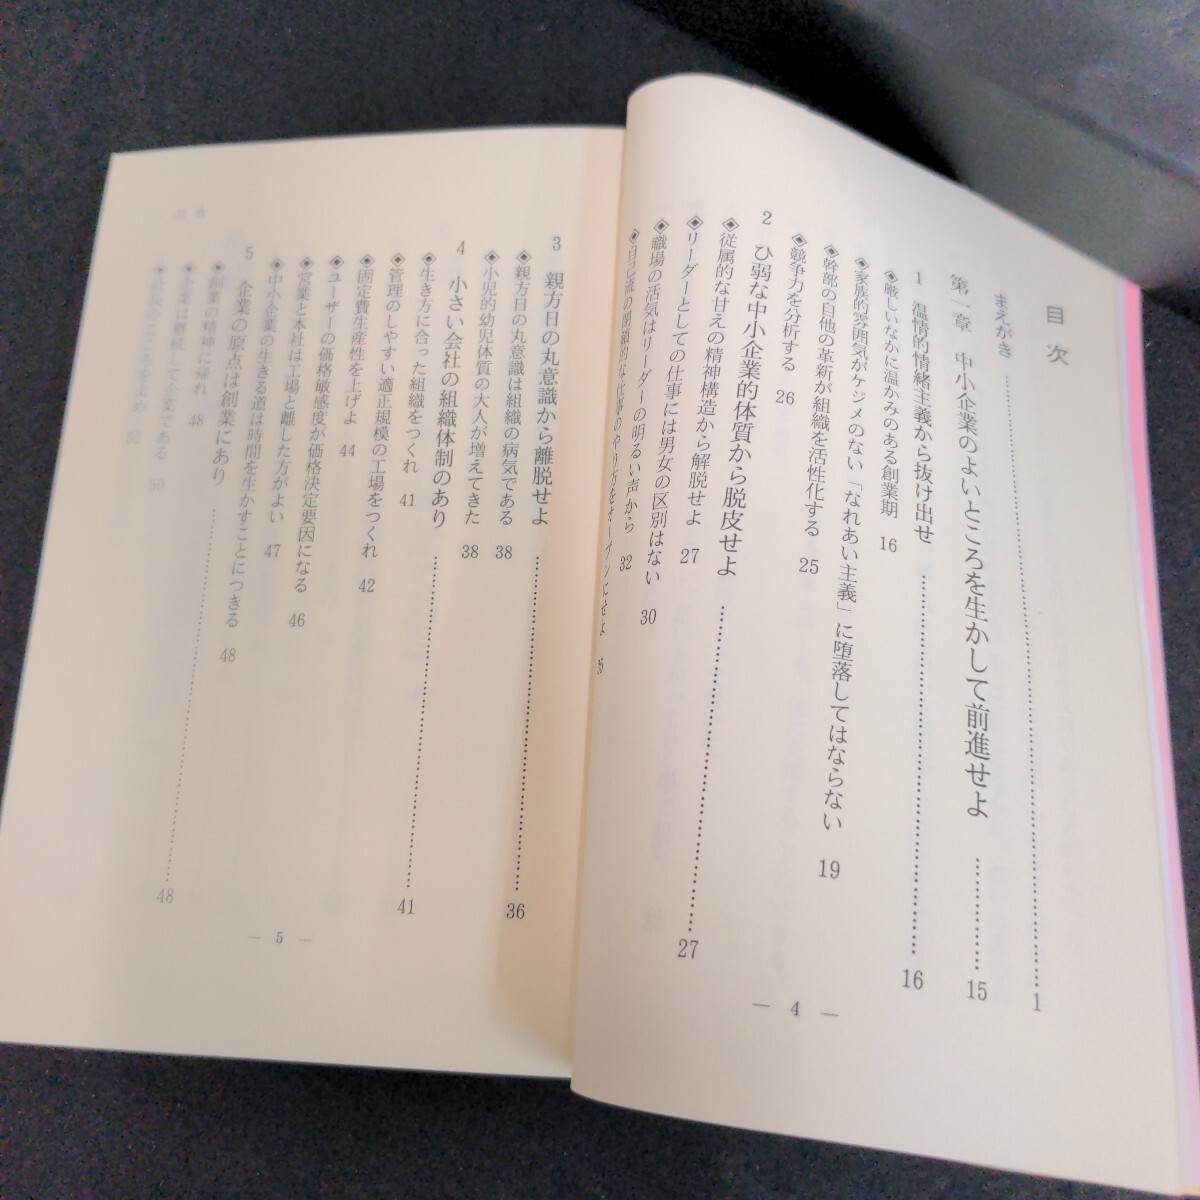 目次
まえがき……1
第一章 中小企業のよいところを生かして前進せよ……15
1 温情的情緒主義から抜け出せ……16
◈厳しいなかに温かみのある創業期 16
◈家族的雰囲気がケジメのない「なれあい主義」に堕落してはならない 19
◈幹部の自他の革新が組織を活性化する 25
◈競争力を分析する 26
2 ひ弱な中小企業的体質から脱皮せよ……27
◈従属的な甘えの精神構造から解脱せよ 27
◈リーダーとしての仕事には男女の区別はない 30
◈職場の活気はリーダーの明るい声から 32
◈自己流の閉鎖的な仕事のやり方をオープンにせよ 35
— 4 —
3 親方日の丸意識から離脱せよ……36
◈親方日の丸意識は組織の病気である 38
◈小児的幼児体質の大人が増えてきた 38
4 小さい会社の組織体制のあり……41
◈生き方に合った組織をつくれ 41
◈管理のしやすい適正規模の工場をつくれ 42
◈固定費生産性を上げよ 44
◈ユーザーの価格敏感度が価格決定要因になる 46
◈営業と本社は工場と離した方がよい 47
◈中小企業の生きる道は時間を生かすことにつきる 48
5 企業の原点は創業にあり……48
◈創業の精神に帰れ 48
◈企業は継続して企業である 50
52
目次
— 5 —